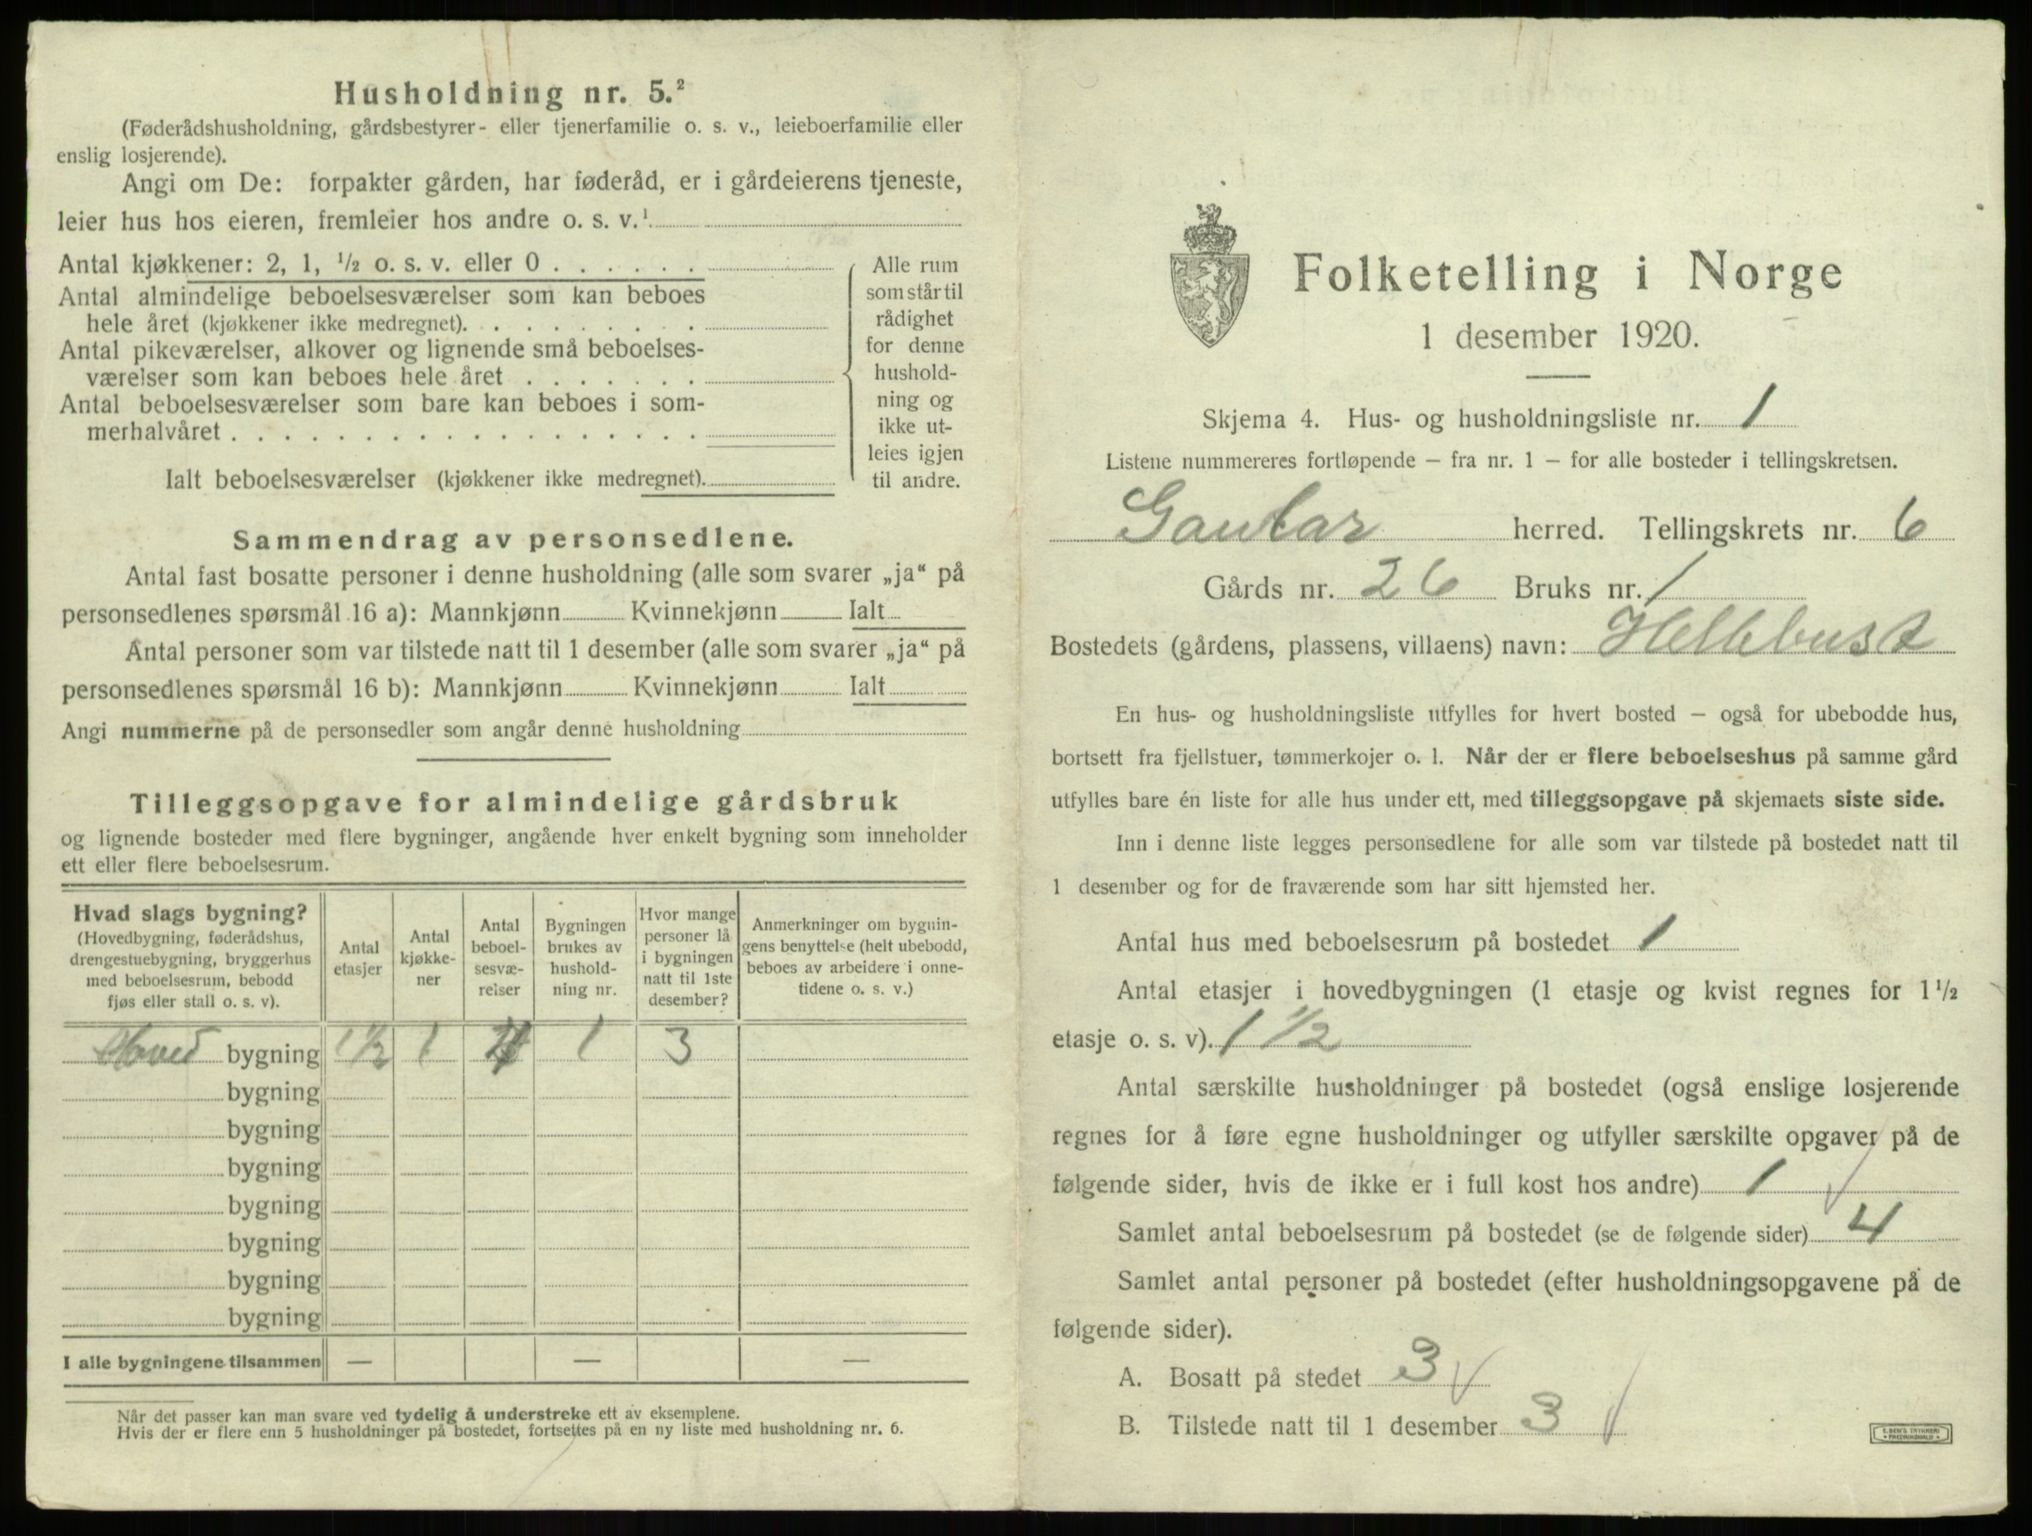 Husholdning nr. 5.²
(Føderådshusholdning, gårdsbestyrer- eller tjenerfamilie o. s. v., leieboerfamilie eller
enslig losjerende).
Angi om De: forpakter gården, har føderåd, er i gårdeierens tjeneste,
leier hus hos eieren, fremleier hos andre o. s. v.¹
Antal kjøkkener: 2, 1, ½ o. s. v. eller 0
Antal almindelige beboelsesværelser som kan beboes
hele året (kjøkkener ikke medregnet).
Antal pikeværelser, alkover og lignende små beboelses-
værelser som kan beboes hele året
Antal beboelsesværelser som bare kan beboes i som-
merhalvåret
Ialt beboelsesværelser (kjøkkener ikke medregnet).
Alle rum
som står til
rådighet
for denne
hushold-
ning og
ikke ut-
leies igjen
til andre.
Sammendrag av personsedlene.
Antal fast bosatte personer i denne husholdning (alle som svarer „ja“ på
personsedlenes spørsmål 16 a): Mannkjønn Kvinnekjønn Ialt
Antal personer som var tilstede natt til 1 desember (alle som svarer „ja“ på
personsedlenes spørsmål 16 b): Mannkjønn Kvinnekjønn Ialt
Angi nummerne på de personsedler som angår denne husholdning
Tilleggsopgave for almindelige gårdsbruk
og lignende bosteder med flere bygninger, angående hver enkelt bygning som inneholder
ett eller flere beboelsesrum.
Hvad slags bygning?
(Hovedbygning, føderådshus,
drengestuebygning, bryggerhus
med beboelsesrum, bebodd
fjøs eller stall o. s. v).
Antal
etasjer
Antal
kjøkke-
ner
Antal
beboel-
sesvæ-
relser
Bygningen
brukes av
hushold-
ning nr.
Hvor mange
personer lå
i bygningen
natt til 1ste
desember?
Anmerkninger om bygnin-
gens benyttelse (helt ubebodd,
beboes av arbeidere i onne-
tidene o. s. v.)
Hoved bygning 1½ 1 4 1 3
bygning
bygning
bygning
bygning
bygning
bygning
bygning
I alle bygningene tilsammen — — —
Når det passer kan man svare ved tydelig å understreke ett av eksemplene.
Hvis der er flere enn 5 husholdninger på bostedet, fortsettes på en ny liste med husholdning nr. 6.
Folketelling i Norge
1 desember 1920.
Skjema 4. Hus- og husholdningsliste nr. 1
Listene nummereres fortløpende — fra nr. 1 — for alle bosteder i tellingskretsen.
Gaular herred. Tellingskrets nr. 6
Gårds nr. 26 Bruks nr. 1
Bostedets (gårdens, plassens, villaens) navn: Hellebust
En hus- og husholdningsliste utfylles for hvert bosted — også for ubebodde hus,
bortsett fra fjellstuer, tømmerkojer o. l. Når der er flere beboelseshus på samme gård
utfylles bare én liste for alle hus under ett, med tilleggsopgave på skjemaets siste side.
Inn i denne liste legges personsedlene for alle som var tilstede på bostedet natt til
1 desember og for de fraværende som har sitt hjemsted her.
Antal hus med beboelsesrum på bostedet 1
Antal etasjer i hovedbygningen (1 etasje og kvist regnes for 1½
etasje o. s. v). 1½
Antal særskilte husholdninger på bostedet (også enslige losjerende
regnes for å føre egne husholdninger og utfyller særskilte opgaver på de
følgende sider, hvis de ikke er i full kost hos andre) 1
Samlet antal beboelsesrum på bostedet (se de følgende sider) 4
Samlet antal personer på bostedet (efter husholdningsopgavene på de
følgende sider).
A. Bosatt på stedet 3
B. Tilstede natt til 1 desember 3